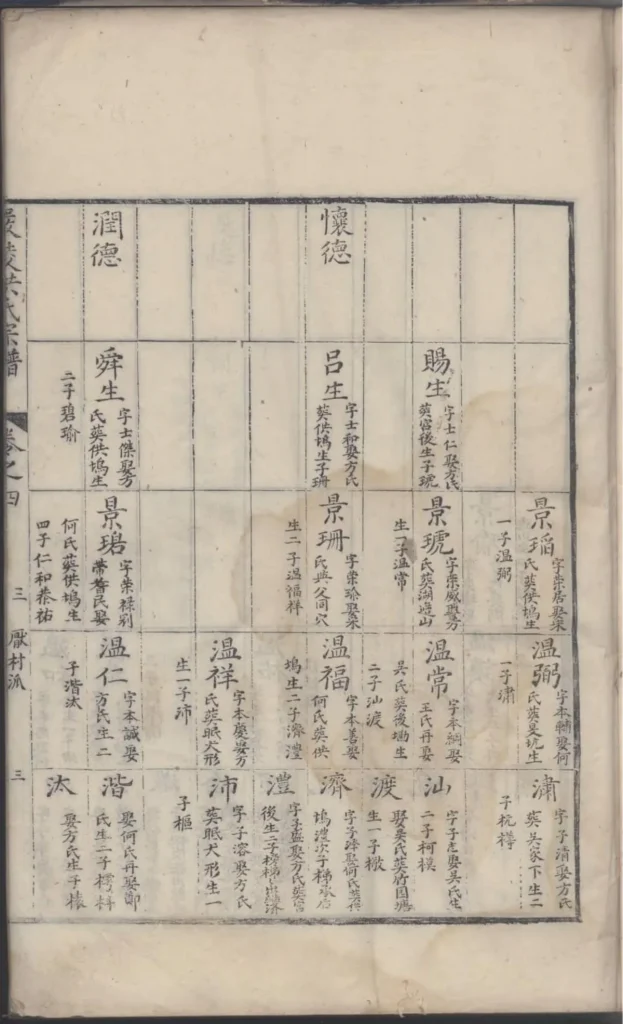 懷德
潤德
賜生
字士仁娶方氏
葬宫後生子琥
呂生
字士和娶方氏
葬供塢生子珊
舜生
字士傑娶方
氏葬供塢生
二子碧瑜
景瑫
字榮居娶宋
氏葬供塢生
一子温弼
景琥
字榮威娶方
氏葬湖邊山
生一子温常
景珊
字榮瑜娶宋
氏與父同穴
生二子温福祥
景碧
字榮祿別
帶醫民娶
何氏葬供塢生
四子仁和恭祐
温弼
字本輔娶何
氏葬旻坑生
一子潚
温常
字本綱娶
王氏再娶
吴氏葬後塢生
二子汕渡
温福
字本善娶
何氏葬供
塢生二子濟澧
温祥
字本慶娶方
氏葬眠犬形
生一子沛
温仁
字本誠娶
方氏生二
子湝汰
潚
字子清娶方氏
葬吴家下生二
子杭樽
汕
字子左娶吴氏生
二子柯模
渡
娶吴氏葬前園塘
生一子檄
濟
字子淳娶何氏葬供
塢澧次子梯承后
澧
字子盛娶方氏葬宫
後生二子樗梯
沛
字子溶娶方氏
葬眠犬形生一
子樞
湝
娶何氏再娶鄭
氏生二子樗料
汰
娶方氏生子榱
嚴陵洪氏宗譜
卷之四
三
厰村派
三